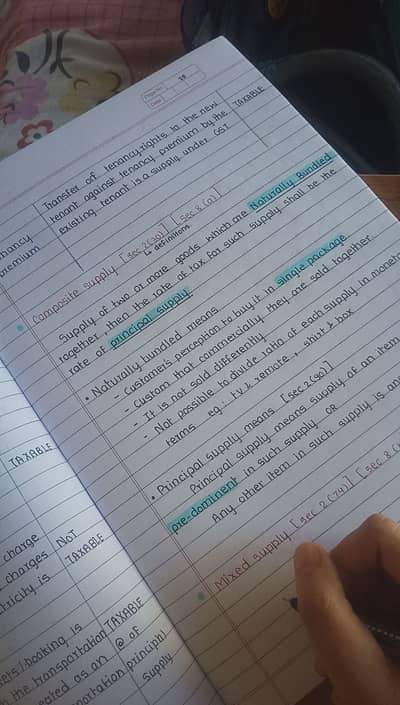 Page No. 58
Date
Transfer of tenancy rights to the new
tenant against tenancy premium by the
existing tenant is a supply under GST
TAXABLE
premium
Composite supply [sec 2(30)] [sec 8(a)]
↳ definitions
Supply of two or more goods which are Naturally Bundled
together, then the rate of tax for such supply shall be the
rate of principal supply.
• Naturally bundled means
- Customer's perception to buy it in single package
- Custom that commercially they are sold together
- It is not sold differently
- Not possible to divide ratio of each supply in
terms eg: tv & remote, shirt & box
• Principal supply means [sec 2(90)]
Principal supply means supply of an item
pre-dominent in such supply OR
Any other item in such supply is
Mixed supply [sec 2(74)] [sec 8
TAXABLE
charge
charges
is
NOT
TAXABLE
booking is
the transportation
as an
TAXABLE
@ of
supply